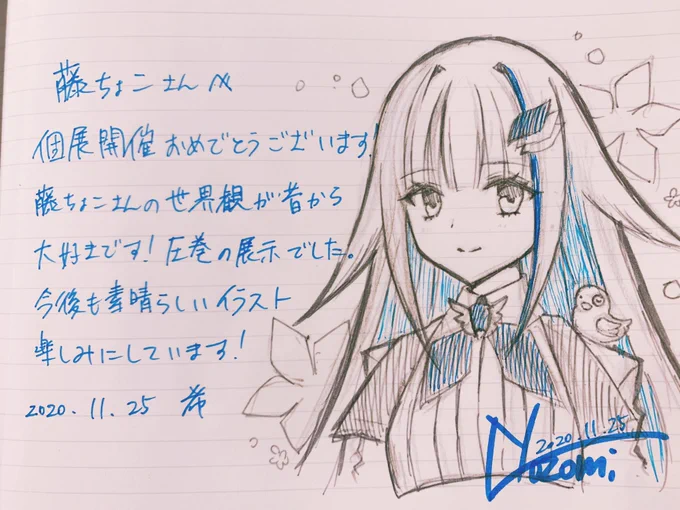 藤ちょこさんへ
個展開催おめでとうございます!
藤ちょこさんの世界観が昔から
大好きです!圧巻の展示でした。
今後も素晴らしいイラスト
楽しみにしています!
2020.11.25 希
2020.11.25
Nozomi.